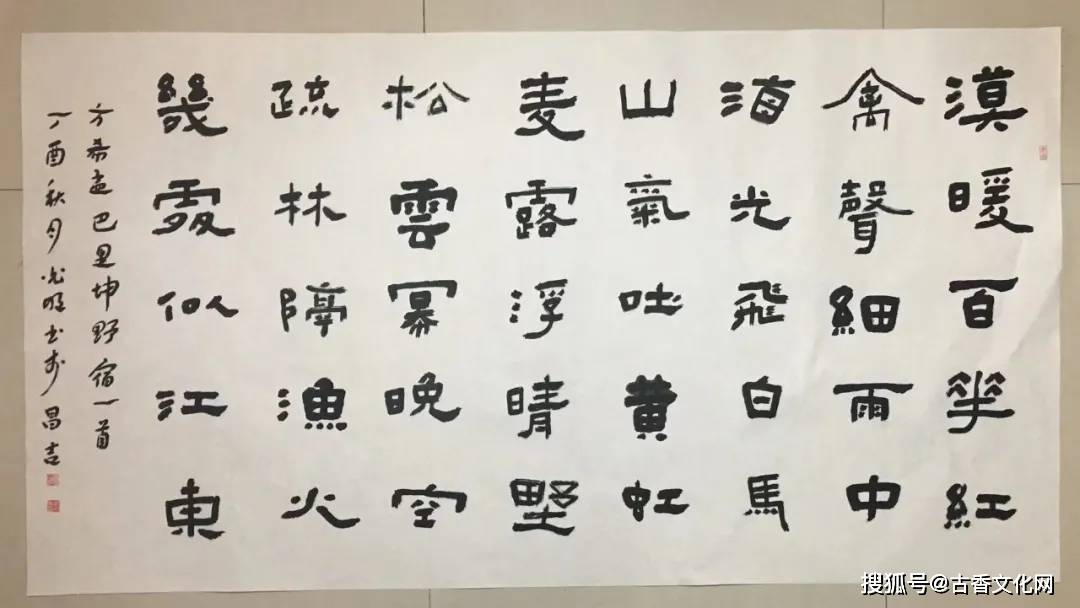 漠暖百花紅
禽聲細雨中
海光飛白馬
山氣吐黄虹
麦露浮晴墅
松雲幂晚空
疏林障漁火
幾處似江東
方希孟巴里坤野宿一首
丁酉秋月光明书於昌吉
搜狐号@古香文化网